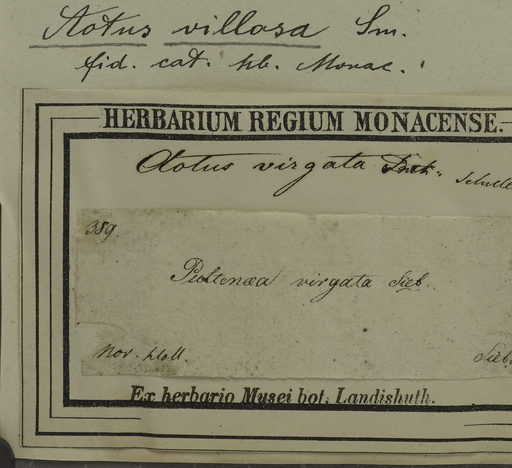 Aotus villosa Sm.
fid. cat. hb. Monac.
HERBARIUM REGIUM MONACENSE.
Aotus virgata
389.
Pultenæa virgata Sieb.
Nov. Holl. Sieb.
Ex herbario Musei bot. Landishuth.